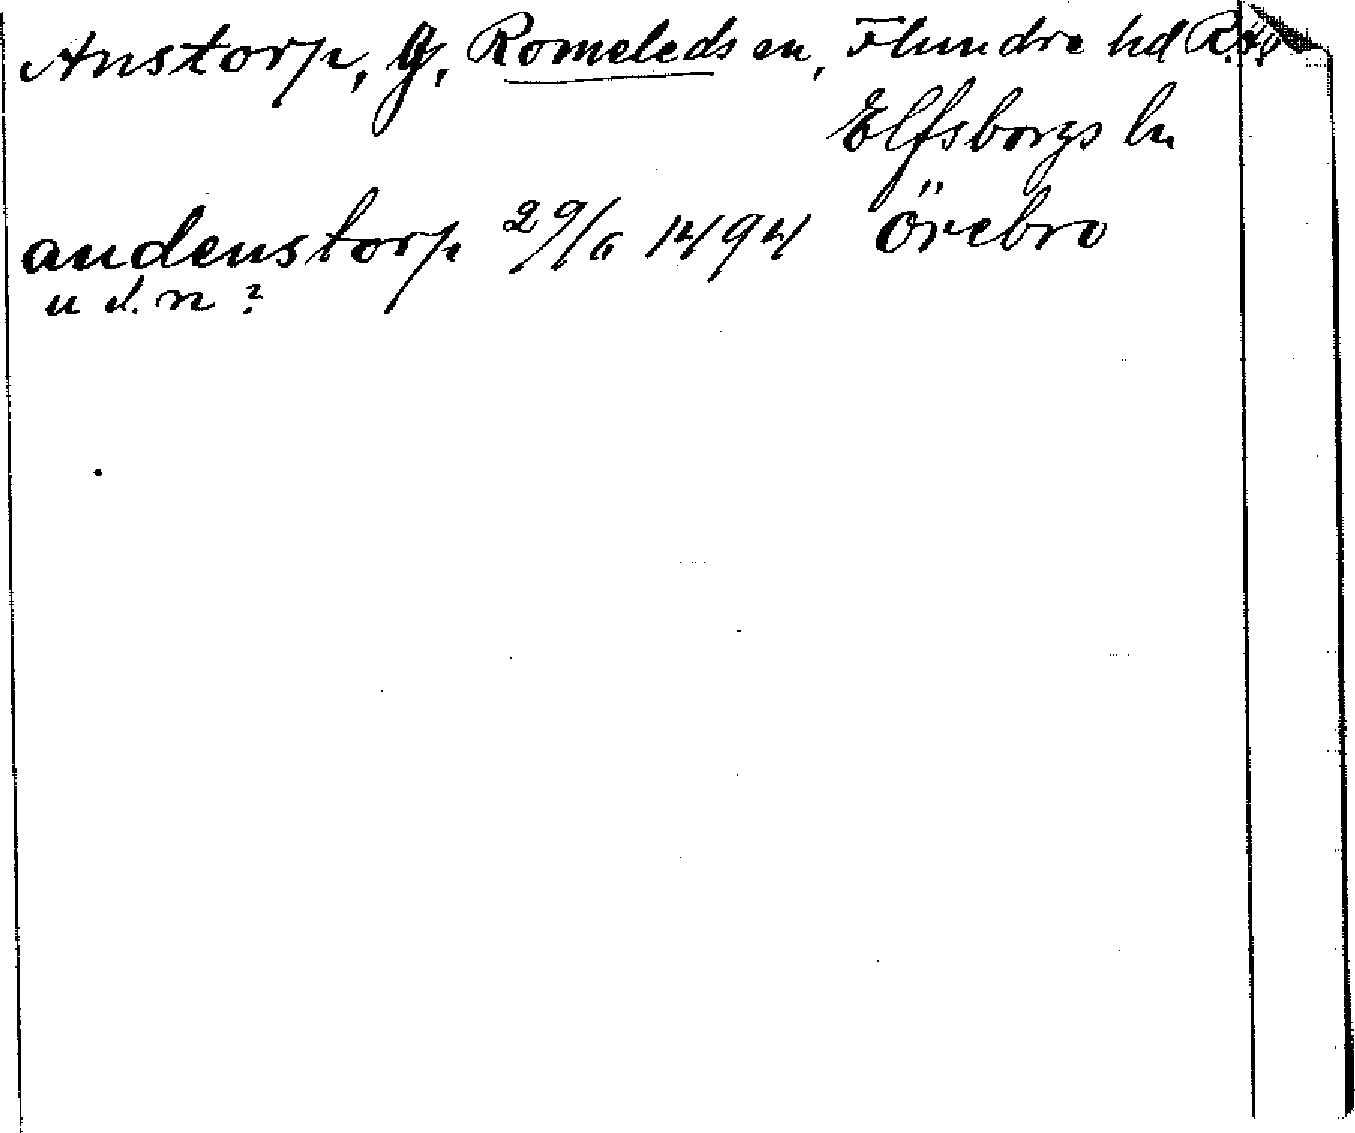 Anstorp, G, Romeleds sn, Flundre hd
Elfsborgs ln
audenstorp 29/6 1494 Örebro
u d. n ?